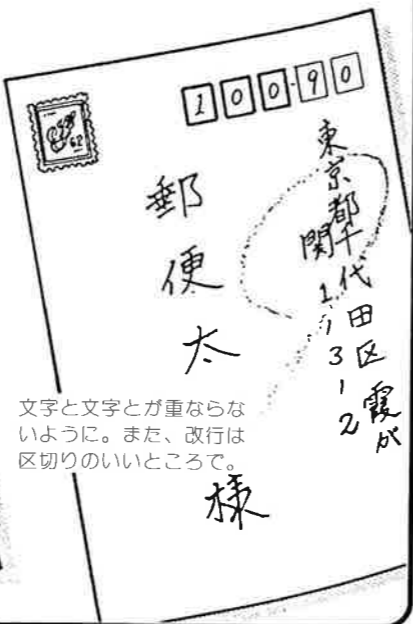 100-90
東京都千代田区霞が
関1-3-2
郵便太 様
文字と文字とが重ならな
いように。また、改行は
区切りのいいところで。